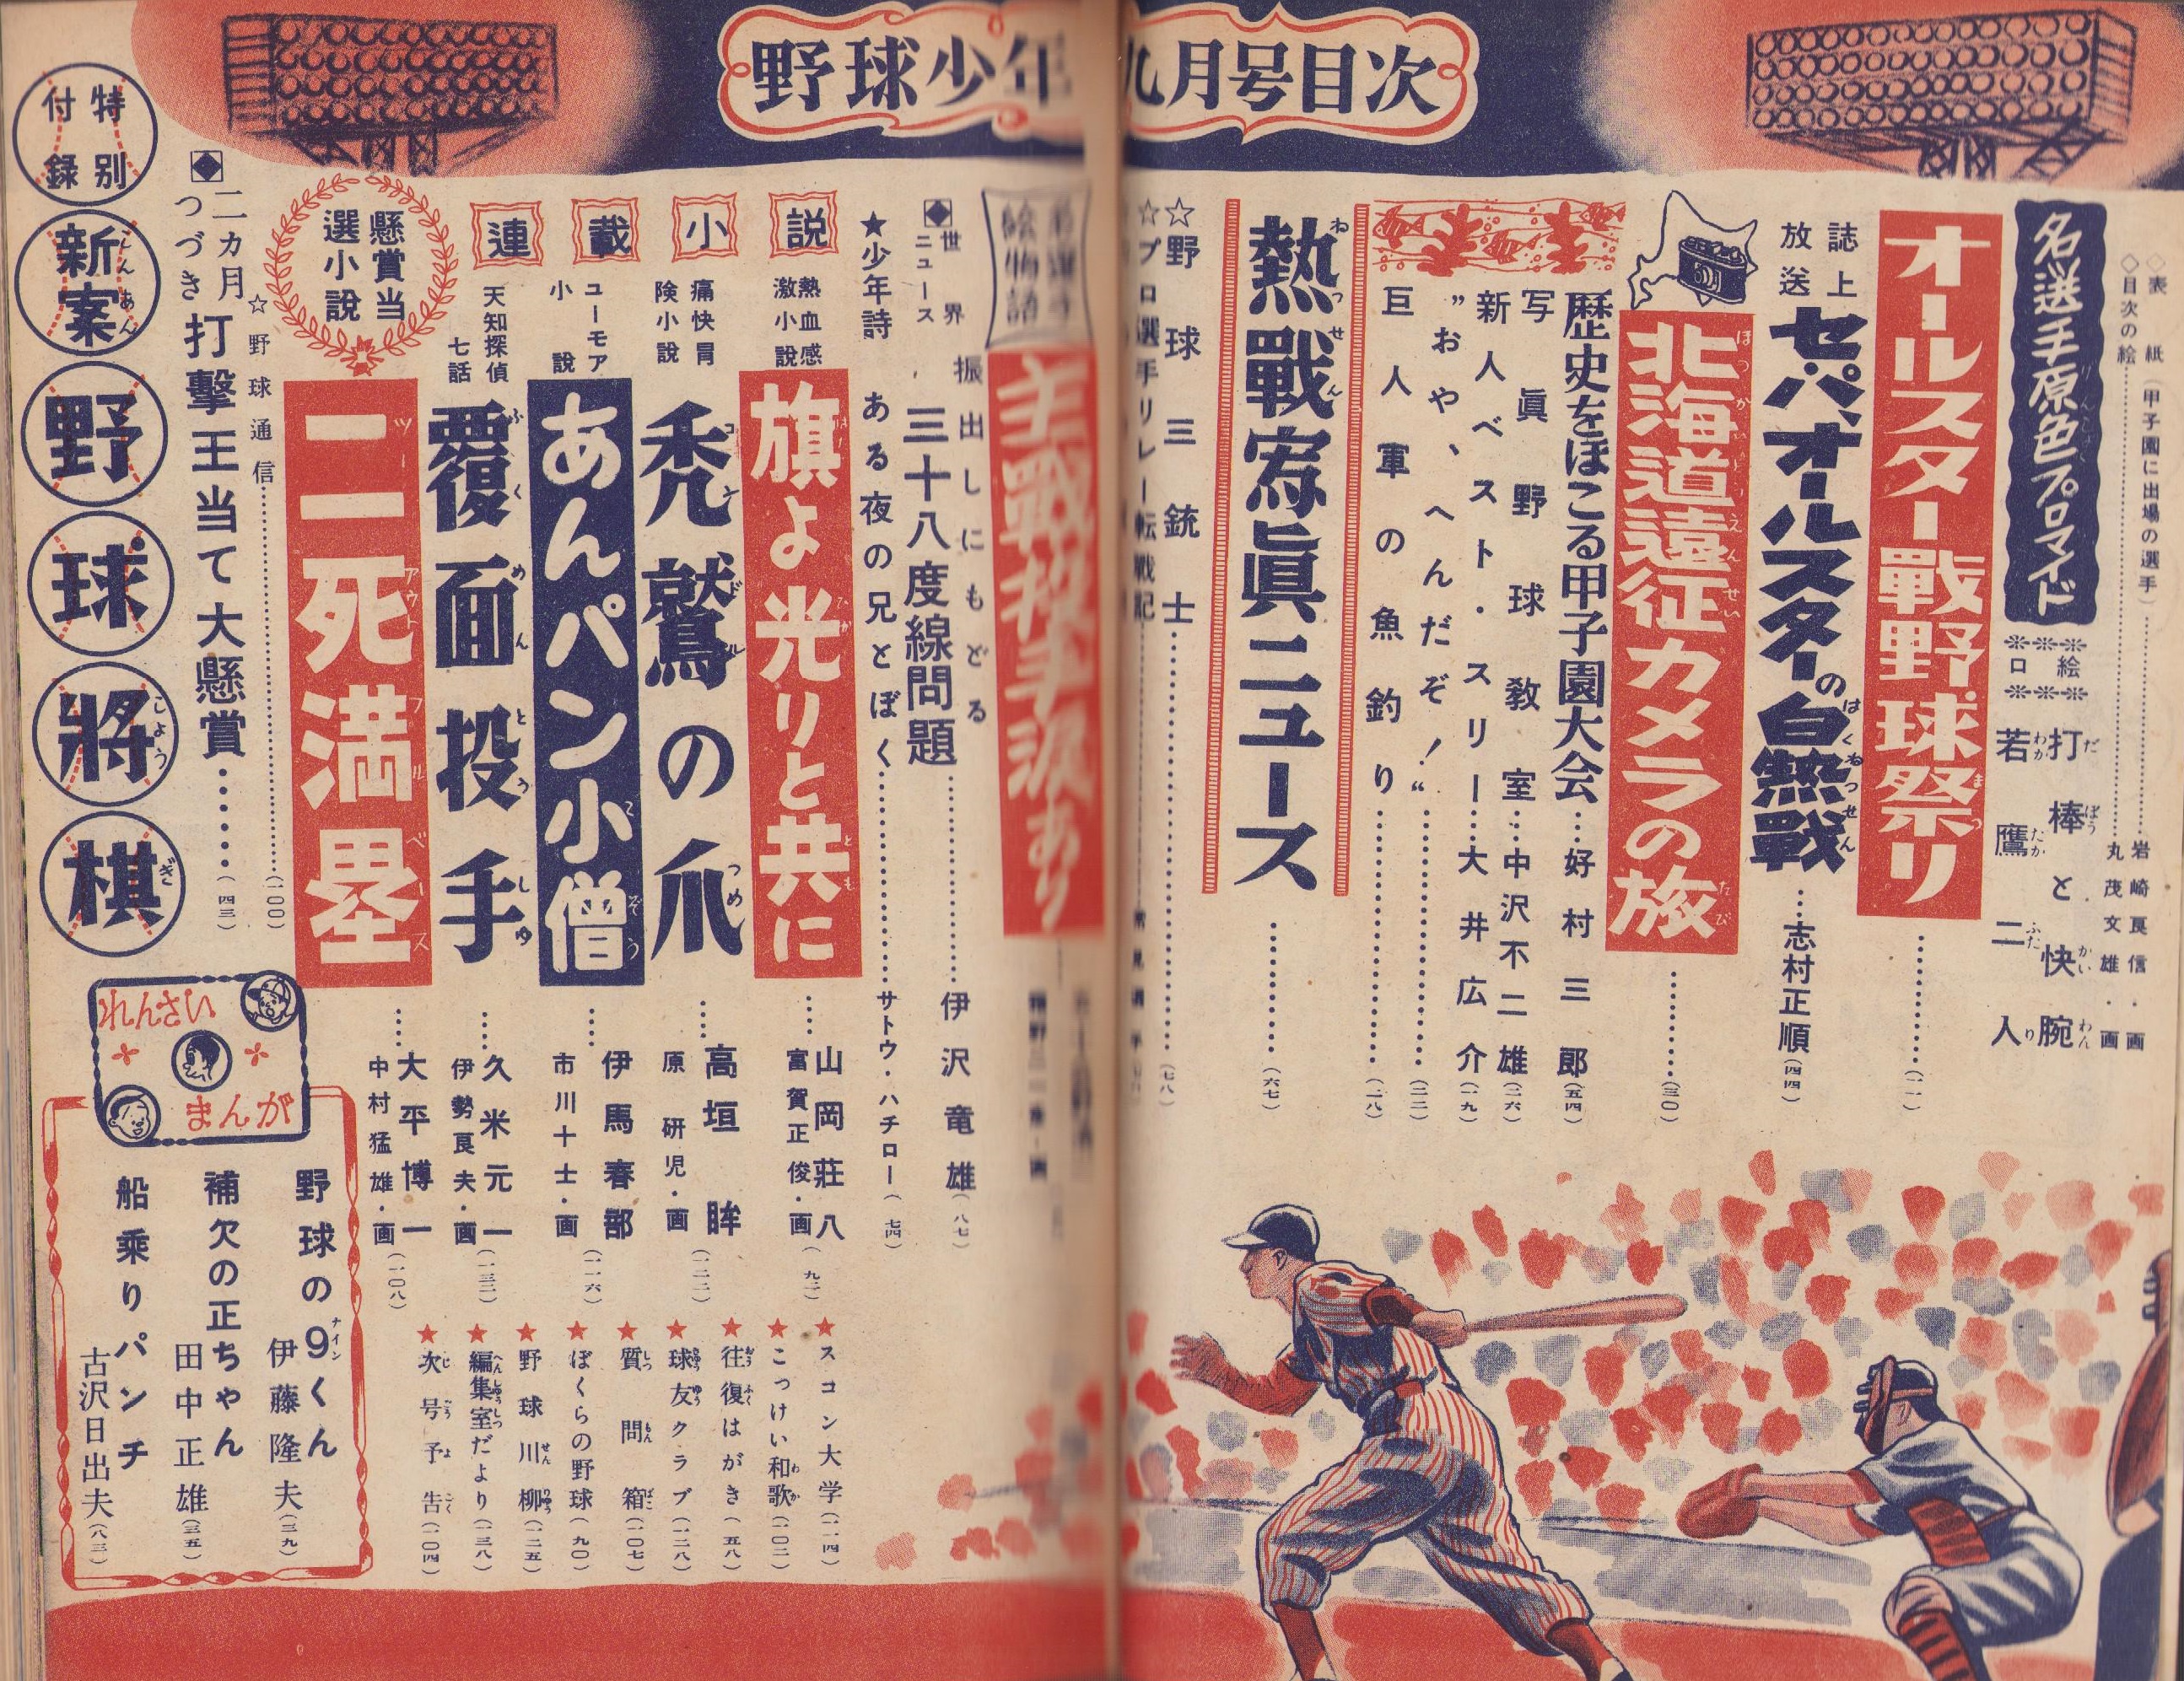 野球少年 九月号目次
◇表紙(甲子園に出場の選手)……岩崎良信・画
◇目次の絵……丸茂文雄・画
名選手原色プロマイド
口絵
打棒と快腕
若鷹二人
オールスター戰野球祭り
誌上放送
セ・パ、オールスターの白熱戰……志村正順(四四)
北海道遠征カメラの旅……(三〇)
歴史をほこる甲子園大会…好村三郎(五四)
写眞野球教室…中沢不二雄(二六)
新人ベスト・スリー…大井広介(一九)
"おや、へんだぞ!"……(二二)
巨人軍の魚釣り……(二八)
熱戰寫眞ニュース……(六七)
☆野球三銃士……(七八)
☆プロ選手リレー転戦記
絵物語
主戰投手涙あり
◆世界ニュース
振出しにもどる
三十八度線問題……伊沢竜雄(八七)
★少年詩 ある夜の兄とぼく……サトウ・ハチロー(七四)
連載小説
熱血感激小説
旗よ光りと共に……山岡荘八
富賀正俊・画(九二)
痛快冒険小説
禿鷲の爪……高垣眸
原研児・画(一二二)
ユーモア小説
あんパン小僧……伊馬春部
市川十士・画(一一六)
天知探偵七話
覆面投手……久米元一
伊勢良夫・画(一三二)
懸賞当選小説
二死満塁……大平博一
中村猛雄・画(一〇八)
☆野球通信……(一〇〇)
◆二カ月つづき打擊王当て大懸賞……(四三)
特別付録
新案野球將棋
★スコン大学(一一四)
★こっけい和歌(一〇二)
★往復はがき(五八)
★球友クラブ(一二八)
★質問箱(一〇七)
★ぼくらの野球(九〇)
★野球川柳(一二五)
★編集室だより(一三八)
★次号予告(一〇四)
れんさいまんが
野球の9くん 伊藤隆夫(三九)
補欠の正ちゃん 田中正雄(三五)
船乗りパンチ 古沢日出夫(八三)